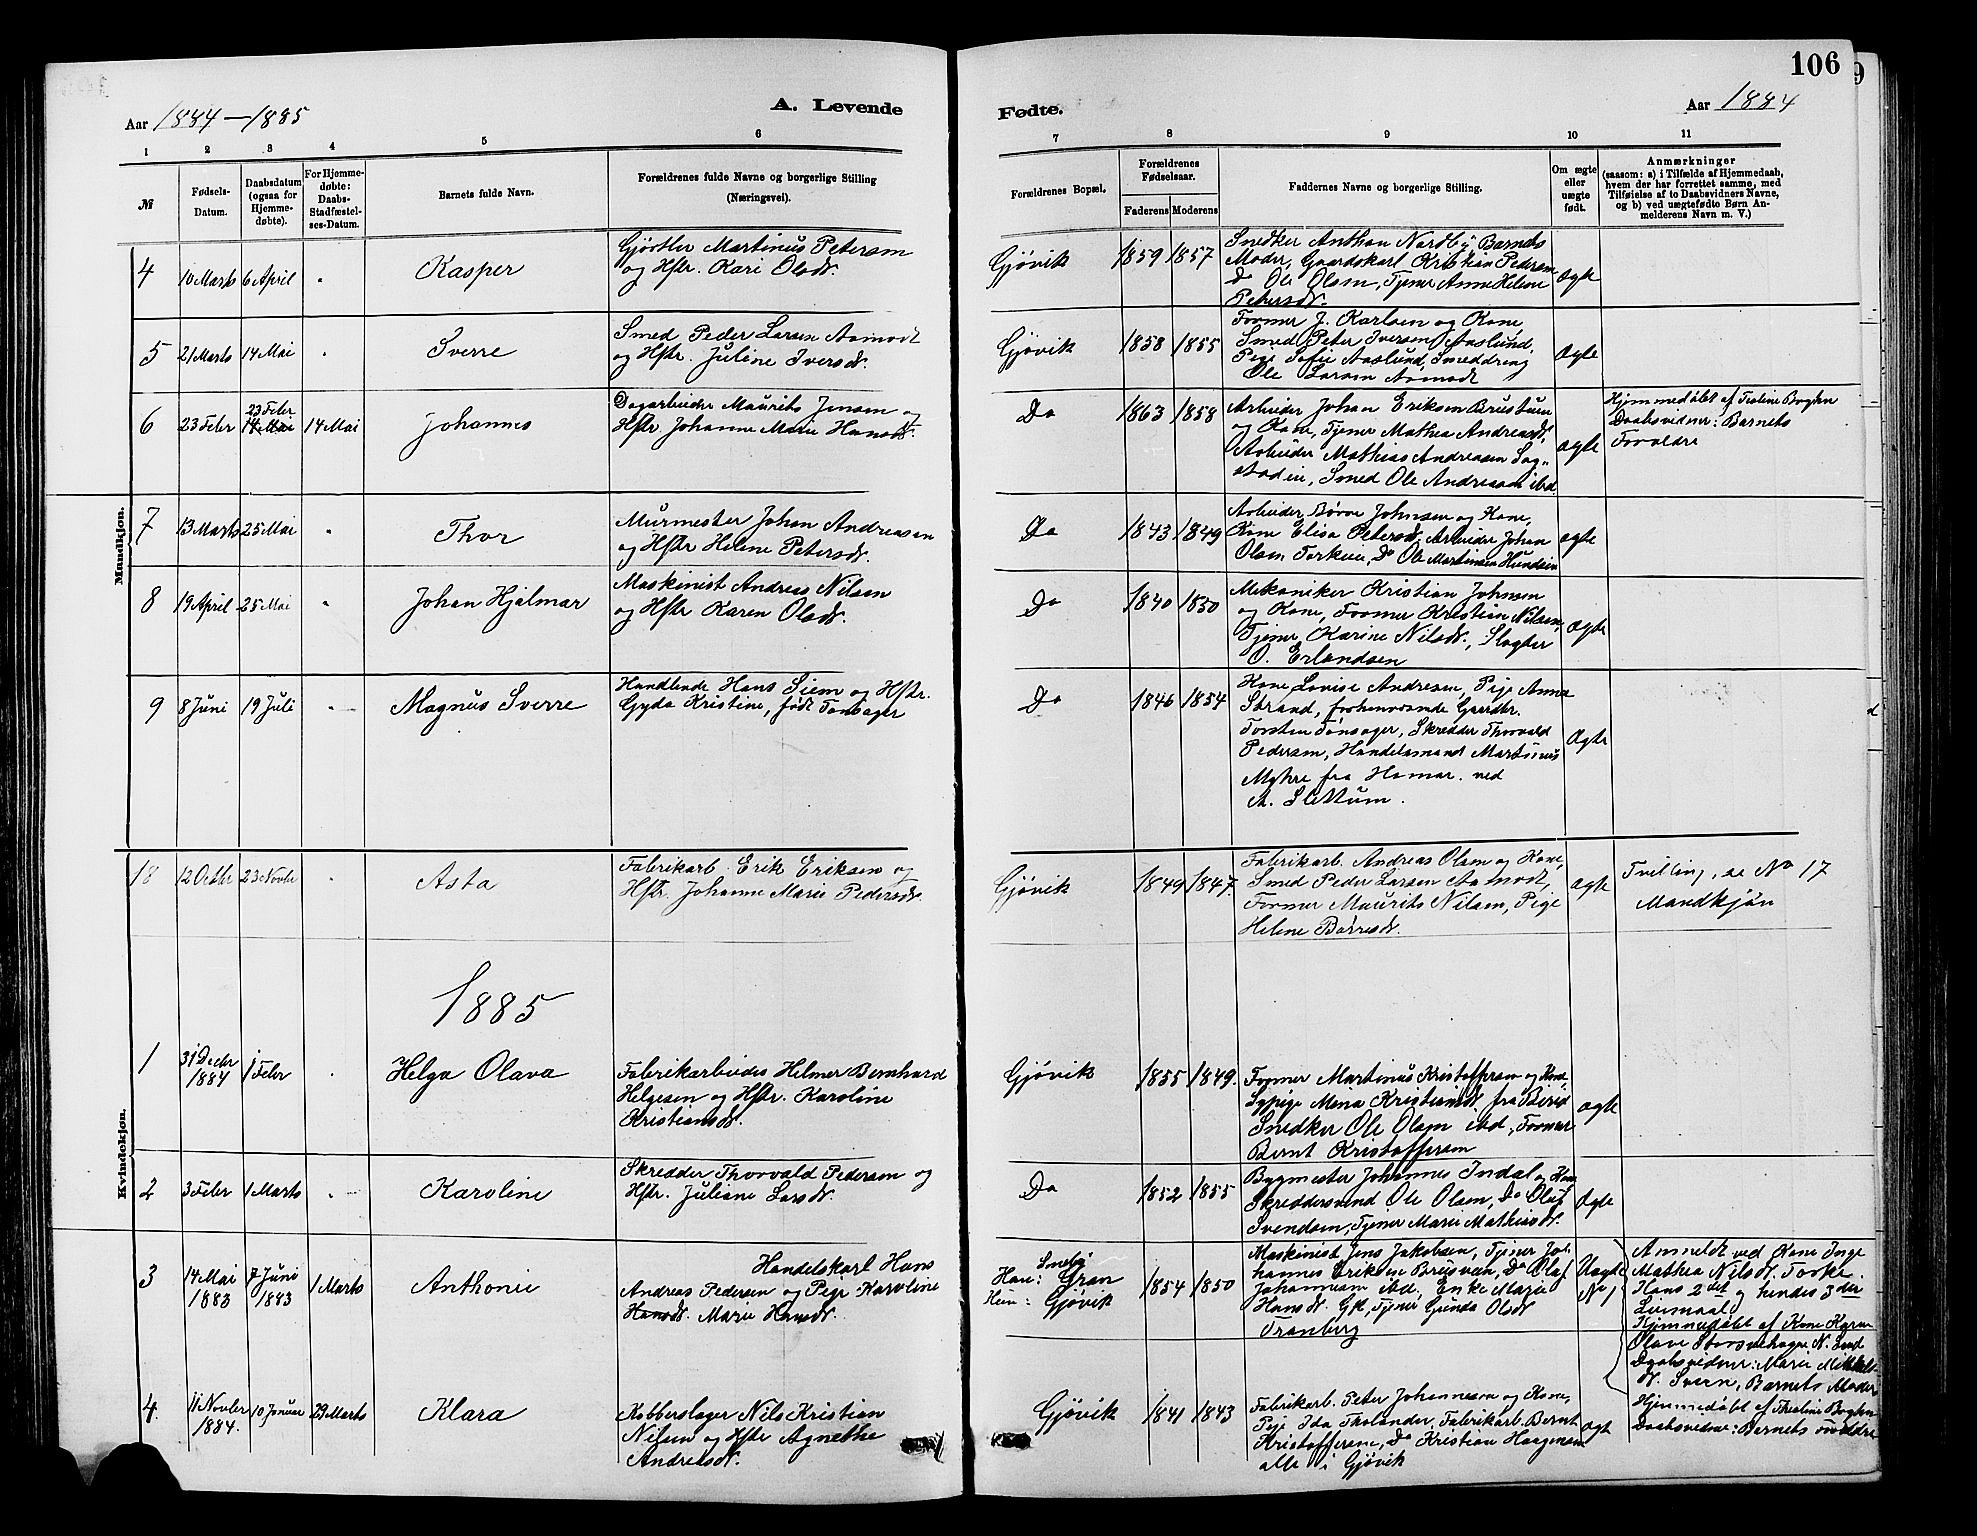 106
Aar 1884-1885
A. Levende
Fødte.
Aar 1884
1 2 3 4 5 6 7 8 9 10 11
№
Fødsels-
Datum.
Daabsdatum
(ogsaa for
Hjemme-
døbte).
For Hjemme-
døbte:
Daabs-
Stadfæstel-
ses-Datum.
Barnets fulde Navn.
Forældrenes fulde Navne og borgerlige Stilling
(Næringsvei).
Forældrenes Bopæl.
Forældrenes
Fødselsaar.
Faderens Moderens
Faddernes Navne og borgerlige Stilling.
Om ægte
eller
uægte
født.
Anmærkninger
(saasom: a) i Tilfælde af Hjemmedaab,
hvem der har forrettet samme, med
Tilføielse af to Daabsvidners Navne,
og b) ved uægtefødte Børn An-
melderens Navn m. V.)
Mandkjøn.
4 10 Marts 6 April " Kasper
Gjørtler Martinus Petersen
og Hstr. Kari Olsdr.
Gjøvik 1859 1857
Snedker Anthon Nordby, Barnets
Moder, Gaardskarl Kristian Pedersen
Do Ole Olsen, Tjener Anne Helene
Petersdr.
Ægte
5 21 Marts 14 Mai " Sverre
Smed Peder Larsen Aamodt
og Hstr. Juline Iversdr.
Gjøvik 1858 1855
Former J. Karlsen og Kone,
Smed Peter Iversen Aaslund,
Pige Sofie Aaslund, Smeddreng
Ole Larsen Aamodt
Ægte
6 23 Febr 23 Febr 14 Mai 14 Mai Johannes
Dagarbeider Maurits Jensen og
Hstr. Johanne Marie Hansdr.
Do 1863 1858
Arbeider Johan Eriksen Brustuen
og Kone, Tjener Mathea Andreasdr,
Arbeider Mathias Andreasen Sag-
stadeie, Smed Ole Andreasen ibd
Ægte
Hjemmedøbt af Troline Boghen
Daabsvidner: Barnets
Forældre
7 13 Marts 25 Mai " Thor
Murmester Johan Andreasen
og Hstr Helene Petersdr.
Do 1843 1849
Arbeider Børre Johnsen og Kone,
Kone Elisa Petersdr, Arbeider Johan
Olsen Torkeie, Do Ole Martinsen Hundseie
Ægte
8 19 April 25 Mai " Johan Hjalmar
Maskinist Andreas Nilsen
og Hstr Karen Olsdr.
Do 1840 1850
Mekaniker Kristian Johnsen
og Kone, Former Kristian Nilsen,
Tjener Karine Nilsdr., Slagter
O. Erlandsen
Ægte
9 8 Juni 19 Juli " Magnus Sverre
Handlende Hans Siem og Hstr.
Gyda Kristine, født Tønsager
Do 1846 1854
Kone Lovise Andresen, Pige Anna
Strand, forhenværende Gaardbr.
Torsten Tønsager, Skredder Thorvald
Pedersen, Handelsmand Martinus
Myhre fra Hamar. ved
A. Slettum.
Ægte
Kvindekjøn.
18 12 Octbr 23 Novbr " Asta
Fabrikarb. Erik Eriksen og
Hstr. Johanne Marie Pedersdr.
Gjøvik 1849 1847.
Fabrikarb. Andreas Olsen og Kone,
Smed Peder Larsen Aamodt,
Former Maurits Nilsen, Pige
Helene Børresdr.
Ægte
Tvilling, se No 17
Mandkjøn
1885
1 31 Decbr 1884 1 Febr " Helga Olava
Fabrikarbeider Helmer Bernhard
Helgesen og Hstr. Karoline
Kristiansdr.
Gjøvik 1855 1849.
Former Martinus Kristoffersen og Kone,
Sypige Mena Kristiansdr. fra Biried
Snedker Ole Olsen ibd, Former
Bernt Kristoffersen
Ægte
2 3 Febr 1 Marts " Karoline
Skredder Thorvald Pedersen og
Hstr. Juliane Larsdr.
Do 1852 1855
Bygmester Johannes Indal og Kone
Skreddersvend Ole Olsen, Do Oluf
Svendsen, Tjener Marie Mathiasdr.
Ægte
3 14 Mai 1883 7 Juni 1883 1 Marts Anthonie
Handelskarl Hans
Andreas Pedersen og Pige Karoline
Hansdr. Marie Hansdr.
Han: Gran
Hun: Gjøvik 1854 1850
Maskinist Jens Jakobsen, Tjener Jo-
hannes Eriksen Breisveen, Do Olaf
Johannesen ibd, Enke Marie
Hansdr. Gjk, Tjener Gunda Olsdr
Tranberg
Uægte
No 1
Anmeldt ved Kone Inge
Mathea Nilsdr. Torke.
Hans 2det og hendes 3die
Leiermaal
Hjemmedøbt af Kone Karen
Olave N. Land
Daabsvidner: Marie
Sveen, Barnets Moder
4. 11 Novbr 1884. 10 Januar 29 Marts Klara
Kobberslager Nils Kristian
Nilsen og Hstr Agnethe
Andreasdr.
Gjøvik 1841 1843
Fabrikarb. Peter Johannesen og Kone,
Pige Ida Tholander, Fabrikarb. Bernt
Kristoffersen, Do Kristian Haagensen
alle i Gjøvik
Ægte
Hjemmedøbt af Thioline Boghen
Daabsvidner: Barnets Forældre